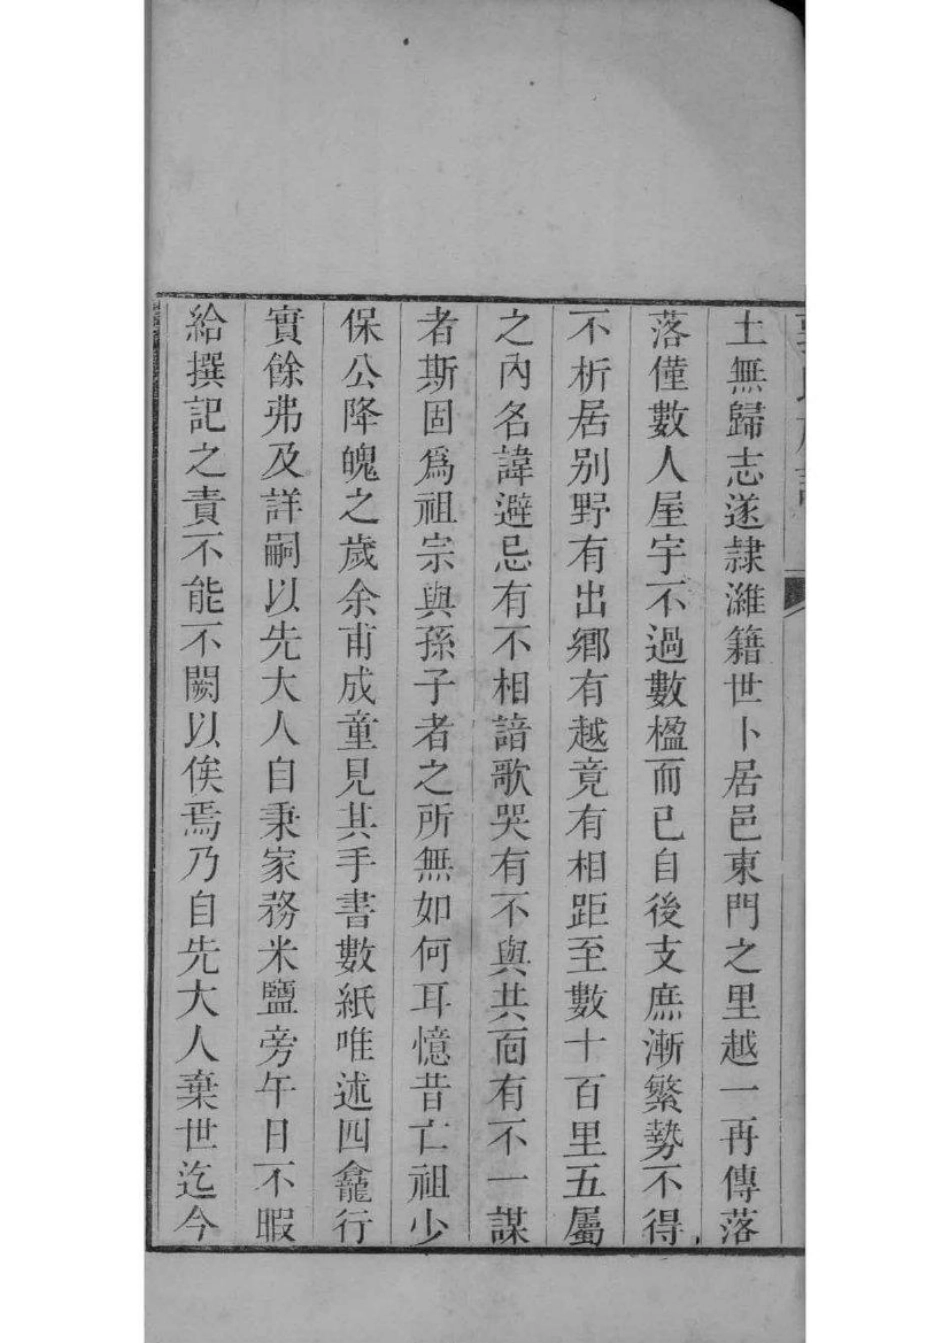 土無歸志遂隷濰籍世卜居邑東門之里越一再傳落
落僅數人屋宇不過數楹而已自後支庶漸繁勢不得
不析居别野有出鄉有越竟有相距至數十百里五屬
之內名諱避忌有不相諳歌哭有不與共而有不一謀
者斯固爲祖宗與孫子者之所無如何耳憶昔亡祖少
保公降魄之歲余甫成童見其手書數紙唯述四龕行
實餘弗及詳嗣以先大人自秉家務米鹽旁午日不暇
給撰記之責不能不闕以俟焉乃自先大人棄世迄今